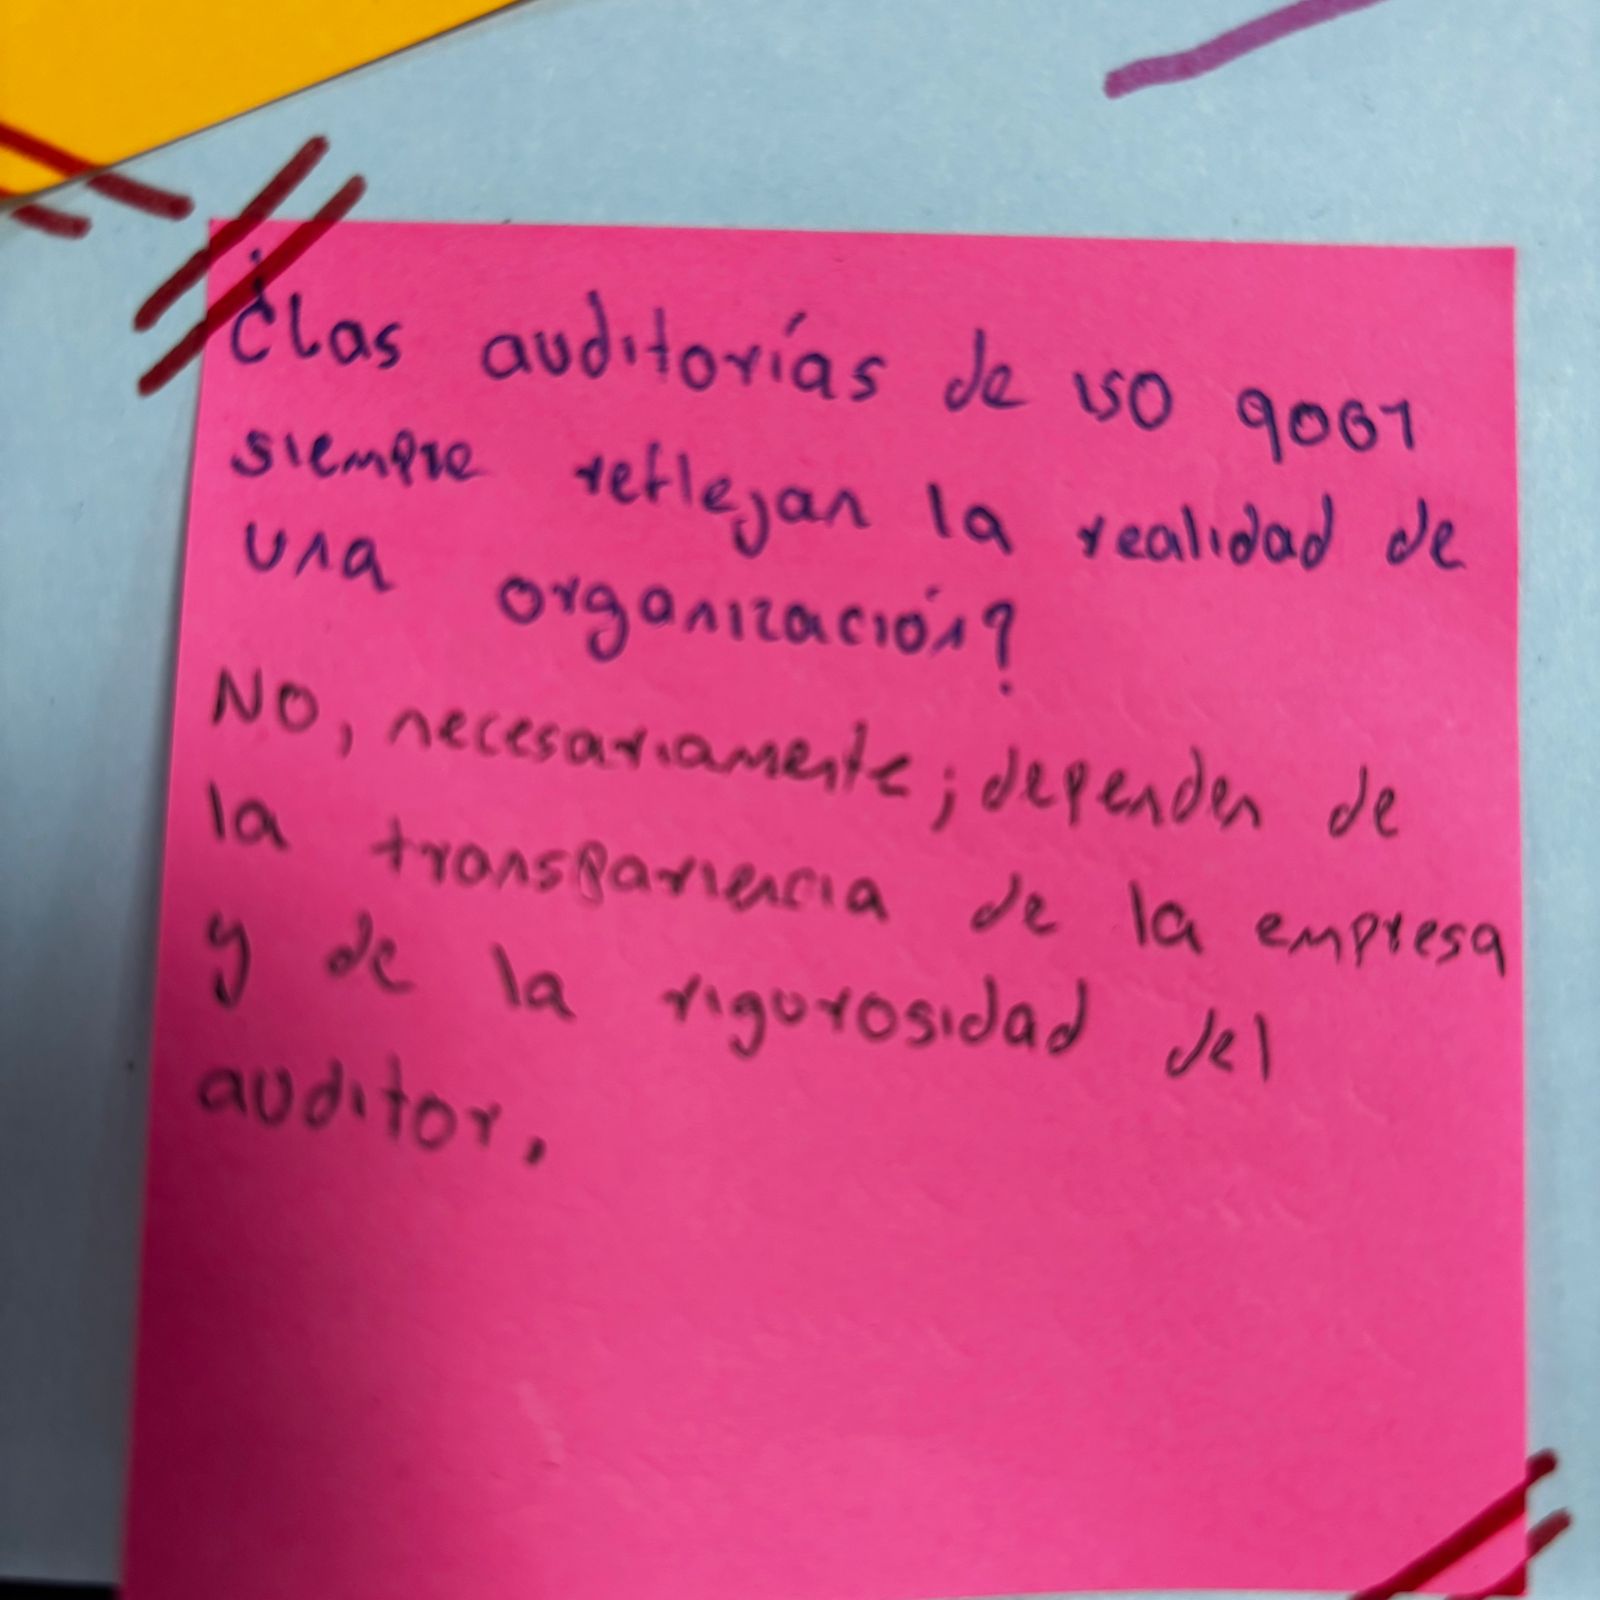 ¿Las auditorías de ISO 9001
siempre reflejan la realidad de
una organización?
No, necesariamente; dependen de
la transpariencia de la empresa
y de la rigurosidad del
auditor.